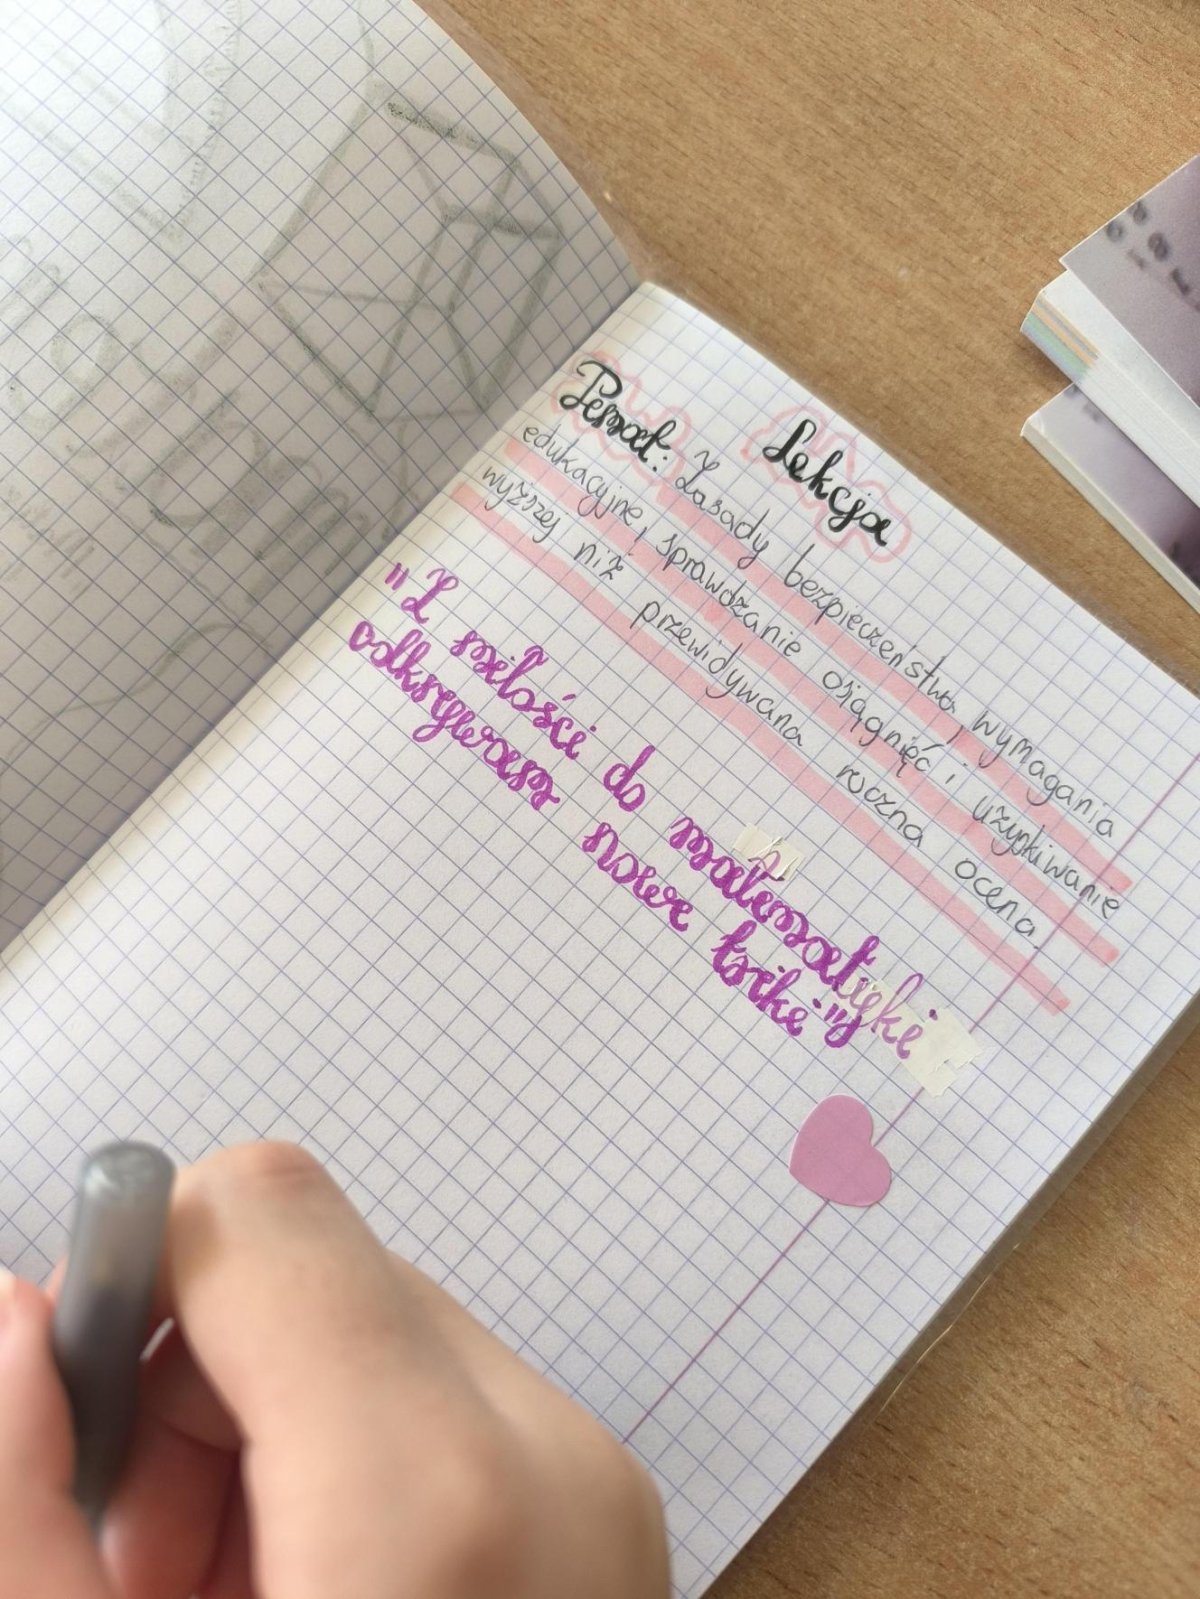 Lekcja
Temat: Zasady bezpieczeństwa, wymagania
edukacyjne, sprawdzanie osiągnięć i uzyskiwanie
wyższej niż przewidywana roczna ocena.
"Z miłości do matematyki
odkrywam nowe triki"